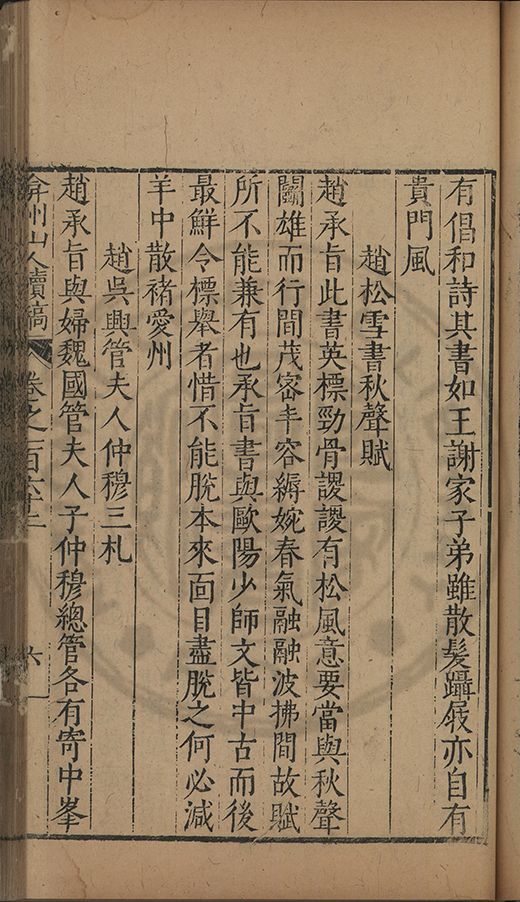 有倡和詩其書如王謝家子弟雖散髮躡屐亦自有
貴門風
趙松雪書秋聲賦
趙承旨此書英標勁骨謖謖有松風意要當與秋聲
鬭雄而行間茂密丰容縟婉春氣融融波拂間故賦
所不能兼有也承旨書與歐陽少師文皆中古而後
最鮮令標舉者惜不能脫本來面目盡脫之何必減
羊中散褚愛州
趙吳興管夫人仲穆三札
趙承旨與婦魏國管夫人子仲穆總管各有寄中峯
弇州山人續稿 卷之一百六十二 六